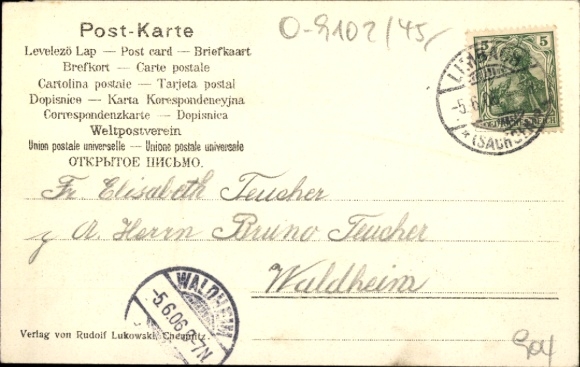 Post-Karte
Levelező Lap — Post card — Briefkaart
Brefkort — Carte postale
Cartolina postale — Tarjeta postal
Dopisnice — Karta Korespondencyjna
Correspondenzkarte — Dopisnica
Weltpostverein
Union postale universelle — Unione postale universale
ОТКРЫТОЕ ПИСЬМО.
O-9102/45/
5 5
LIMBACH
-5.6.06
*(SACHSEN)
Fr. Elisabeth Teucher
z A. Herrn Bruno Teucher
Waldheim
WALDHEIM
-5.6.06 6-7N
Verlag von Rudolf Lukowski, Chemnitz.
904